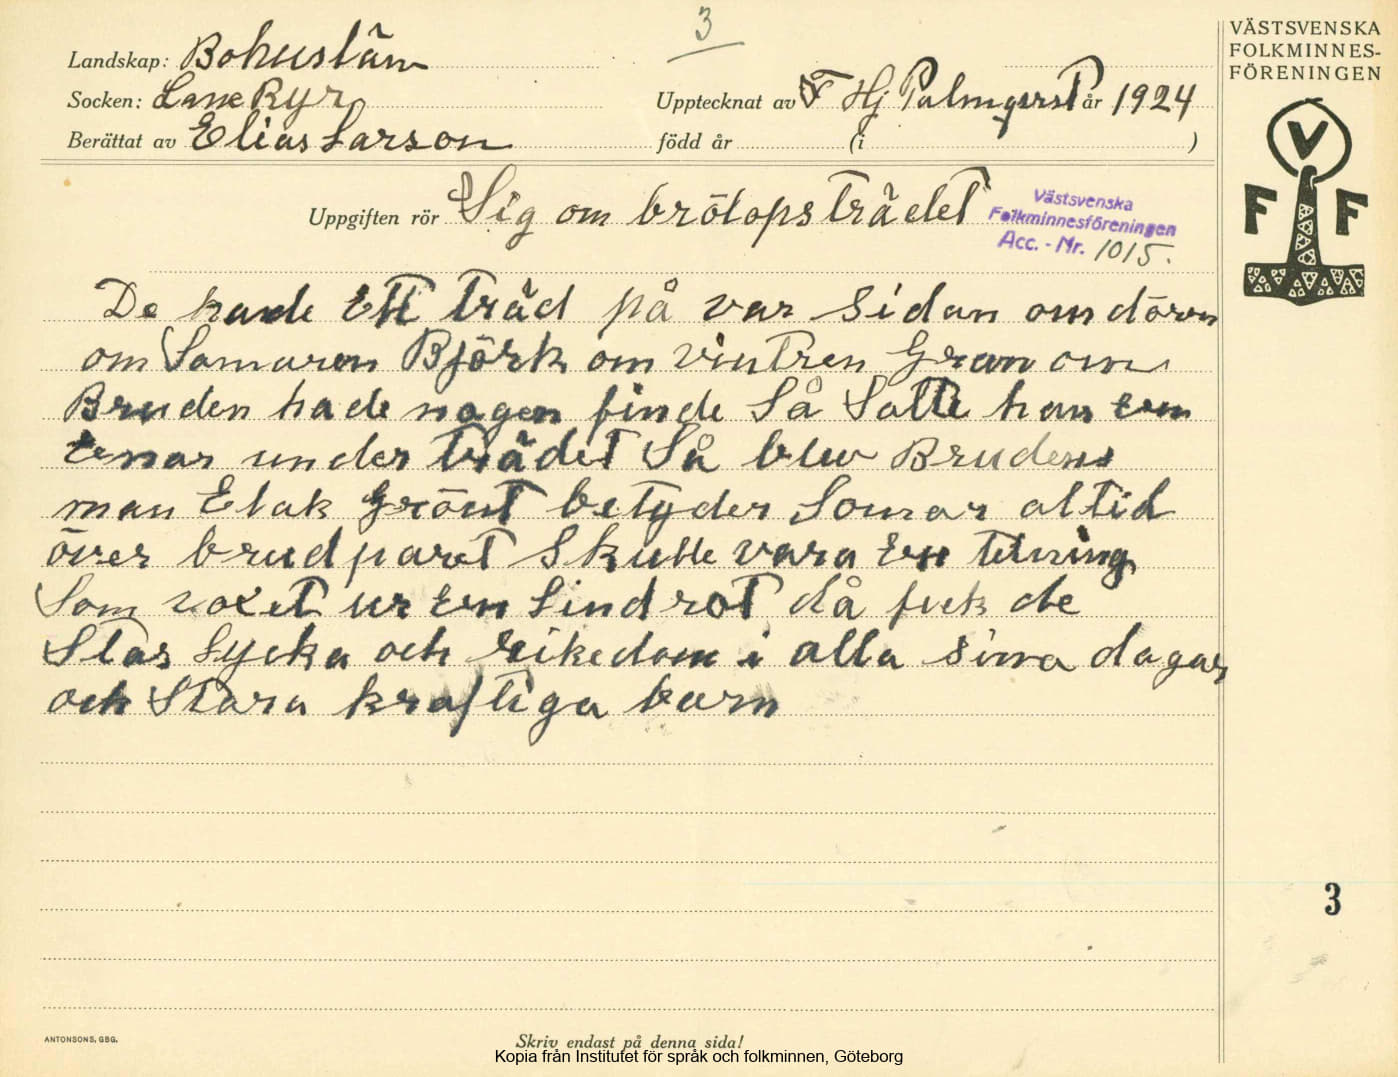 3
VÄSTSVENSKA
FOLKMINNES-
FÖRENINGEN
Landskap: Bohuslän
Socken: Lane Ryr
Upptecknat av Hj Palmqvist år 1924
Berättat av Elias Larson
född år (i )
V
F F
Uppgiften rör Sig om brölopsträdet
Västsvenska
Folkminnesföreningen
Acc. - Nr. 1015.
De hade Ett träd på var sidan om dören
om Somaren Björk om vintren Gran om
Bruden hade nagen finde Så Satte han en
under trädet Så blev Brudens
man Elak Grönt betyder Somar altid
över brudparet Skulle vara En
Som voxet ur en Lindrot då fick de
Stor Lycka och rikedom i alla sinna dagar
och Stora kraftiga barn
3
ANTONSONS, GBG.
Skriv endast på denna sida!
Kopia från Institutet för språk och folkminnen, Göteborg